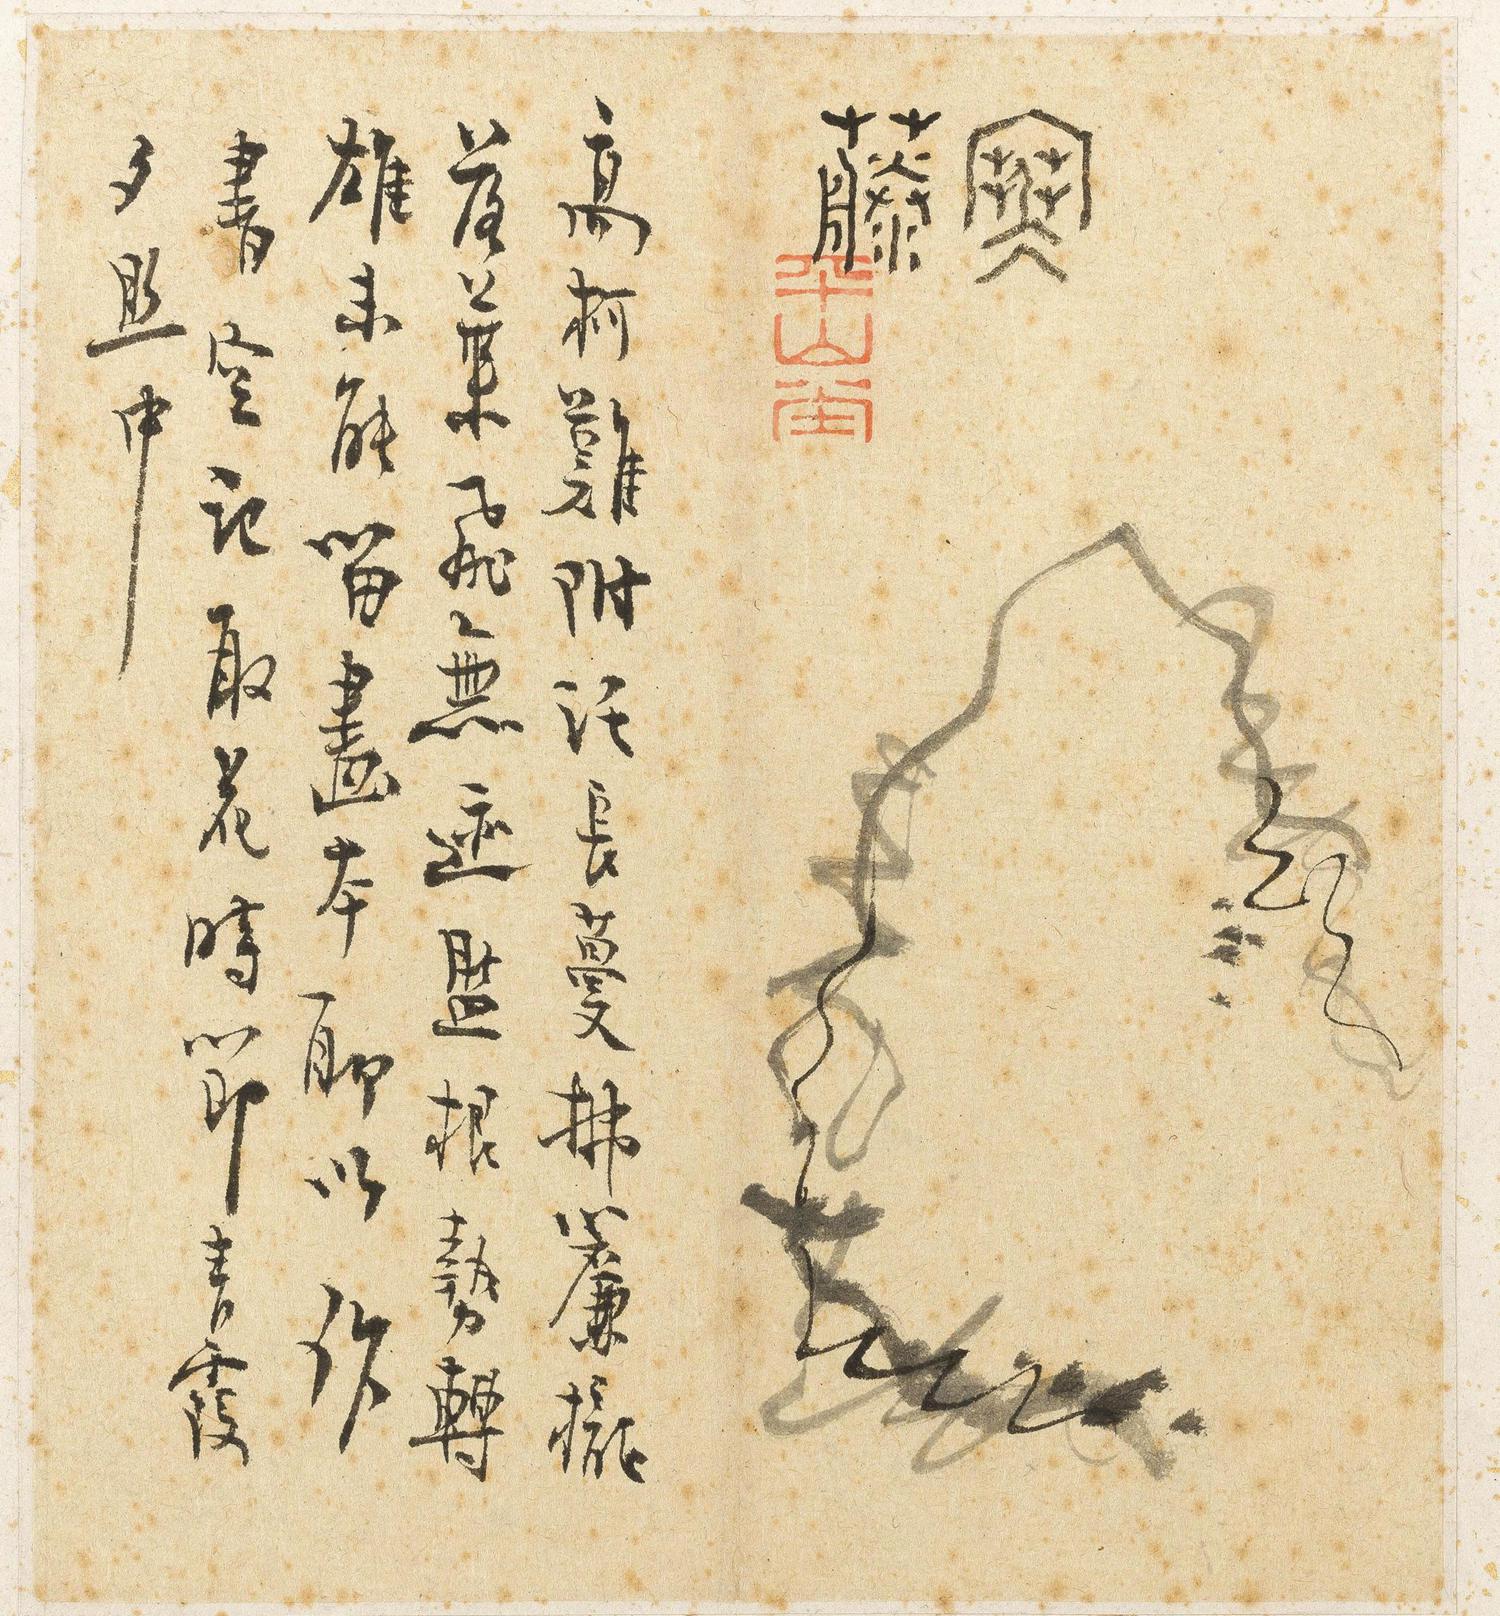 寒藤
半山堂
高柯難附託長蔓拂簾櫳
落葉飛無迹盤根勢轉
雄未能留畫本聊以作
書空記取花時節青霞
夕照中